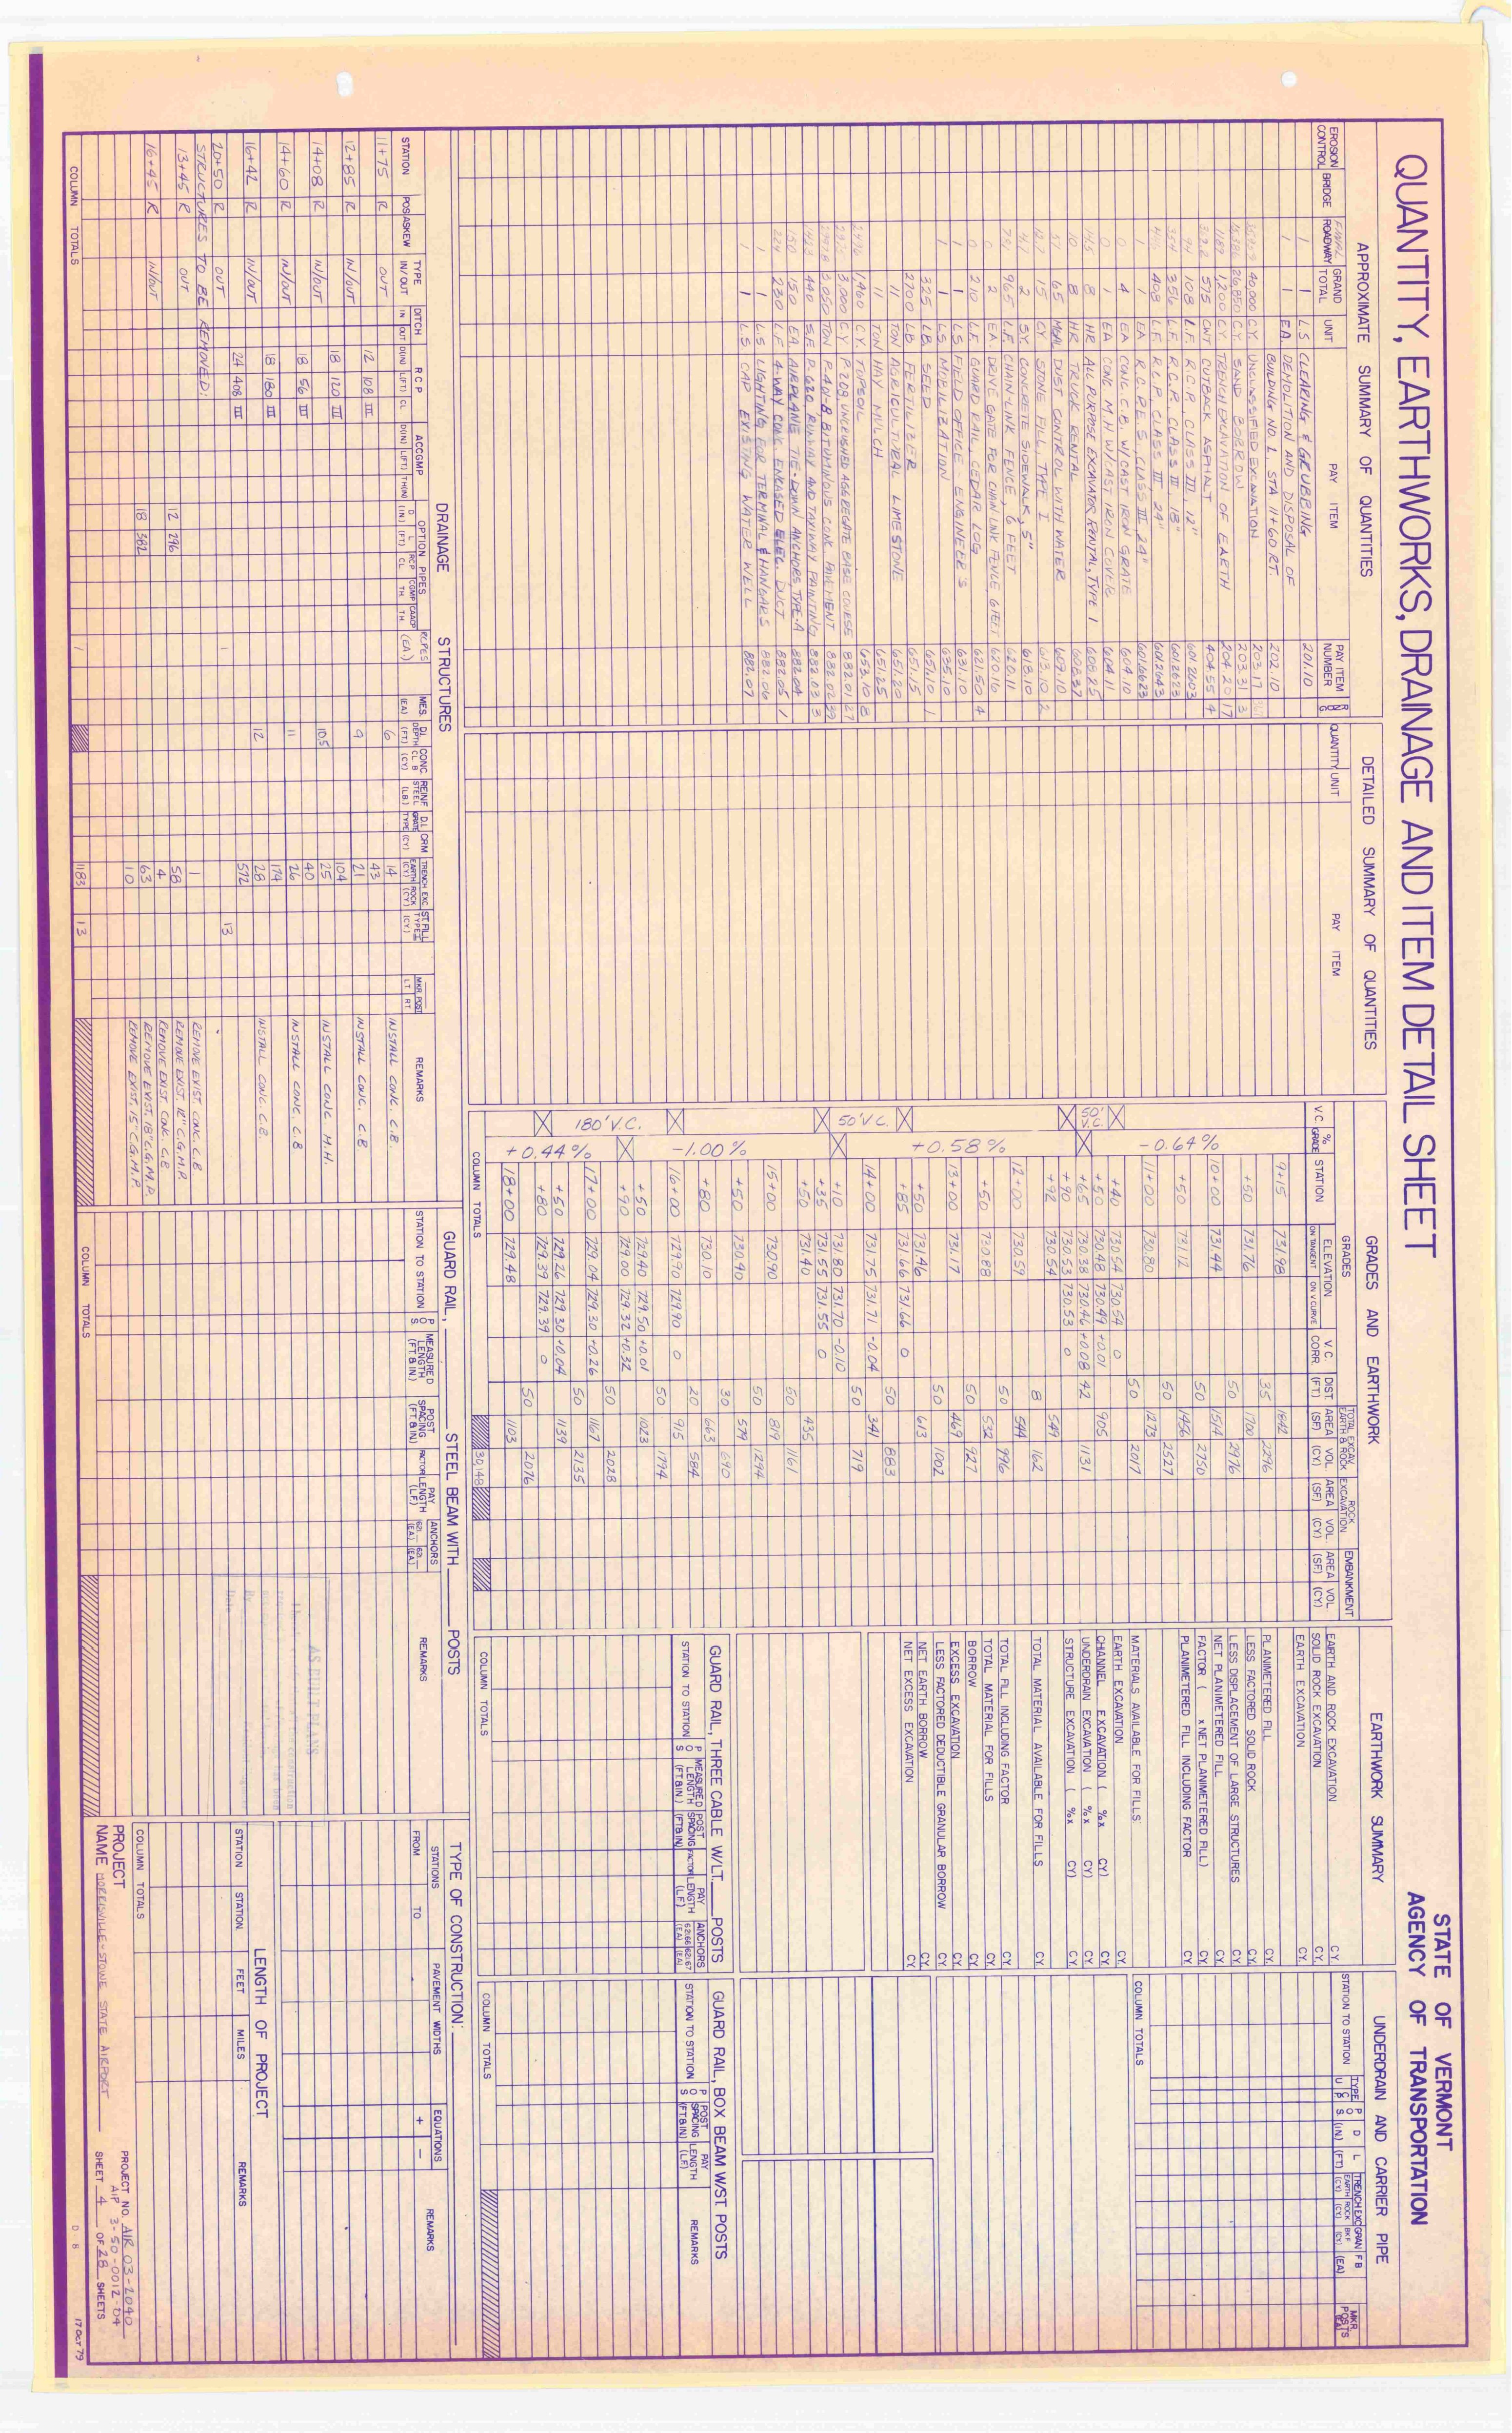 QUANTITY, EARTHWORKS, DRAINAGE AND ITEM DETAIL SHEET
STATE OF VERMONT
AGENCY OF TRANSPORTATION
APPROXIMATE SUMMARY OF QUANTITIES
EROSION CONTROL BRIDGE FINAL ROADWAY GRAND TOTAL UNIT PAY ITEM PAY ITEM NUMBER
1 1 L.S CLEARING & GRUBBING 201.10
1 1 EA. DEMOLITION AND DISPOSAL OF
BUILDING NO. 1. STA 11+60 RT. 202.10
40,000 C.Y. UNCLASSIFIED EXCAVATION 203.17
26,850 C.Y. SAND BORROW 203.31
1189 1,200 C.Y. TRENCH EXCAVATION OF EARTH 204.20
575 CWT CUTBACK ASPHALT 404.55
108 L.F. R.C.P. CLASS III, 12" 601.2603
356 L.F. R.C.P. CLASS III, 18" 601.2623
408 L.F. R.C.P. CLASS III, 24" 601.2643
1 1 EA R.C.P.E.S. CLASS III, 24"
4 EA CONC. C.B. W/CAST IRON GRATE 604.10
0 1 EA CONC M.H W/CAST IRON COVER 604.11
8 HR ALL PURPOSE EXCAVATOR RENTAL, TYPE I 608.25
10 8 HR TRUCK RENTAL 608.37
65 MGAL DUST CONTROL WITH WATER 609.10
15 CY. STONE FILL, TYPE I 613.10
2 S.Y. CONCRETE SIDEWALK, 5" 618.10
965 L.F. CHAIN-LINK FENCE, 6 FEET 620.11
2 EA. DRIVE GATE FOR CHAIN LINK FENCE, 6 FEET 620.16
0 210 L.F. GUARD RAIL, CEDAR LOG 621.50
1 1 L.S FIELD OFFICE ENGINEER'S 631.10
1 1 L.S. MOBILIZATION 635.10
325 LB. SEED 651.10
2700 LB FERTILIZER 651.15
11 TON AGRICULTURAL LIMESTONE 651.20
11 TON HAY MULCH 651.25
1,460 C.Y. TOPSOIL 653.10
3,000 C.Y P-208 UNCRUSHED AGGREGATE BASE COURSE 882.01
3,050 TON P-401-B BITUMINOUS CONC. PAVEMENT 882.02
440 S.F. P-620 RUNWAY AND TAXIWAY PAINTING 882.03
150 150 EA AIRPLANE TIE-DOWN ANCHORS TYPE-A 882.04
224 230 L.F. 4-WAY CONC. ENCASED ELEC. DUCT 882.05
1 1 L.S LIGHTING FOR TERMINAL & HANGARS 882.06
1 1 L S CAP EXISTING WATER WELL 882.07
DETAILED SUMMARY OF QUANTITIES
QUANTITY UNIT PAY ITEM
GRADES AND EARTHWORK
V.C. % GRADE STATION GRADES ELEVATION ON TANGENT ON V CURVE V.C. CORR. DIST. (FT) TOTAL EXCAV. EARTH & ROCK AREA (SF) VOL (CY) ROCK EXCAVATION AREA (SF) VOL. (CY) EMBANKMENT AREA (SF) VOL. (CY)
-0.64%
50' V.C.
+0.58%
50' V.C.
-1.00%
180' V.C.
+0.44%
9+15 731.98 1842
35 2296
+50 731.76 1700
50 2976
10+00 731.44 1514
50 2750
+50 731.12 1456
50 2527
11+00 730.80 1273
50 2017
+40 730.54 730.54 0
+50 730.48 730.49 +0.01 905
+65 730.38 730.46 +0.08 42 1131
+90 730.53 730.53 0
+92 730.54 549
8 162
12+00 730.59 544
50 996
+50 730.88 532
50 927
13+00 731.17 469
50 1002
+50 731.46 613
+85 731.66 731.66 0
50 883
14+00 731.75 731.71 -0.04 341
50 719
+10 731.80 731.70 -0.10
+35 731.55 731.55 0
+50 731.40 435
50 1161
15+00 730.90 819
50 1294
+50 730.40 579
30 690
+80 730.10 663
20 584
16+00 729.90 729.90 0 915
50 1794
+50 729.40 729.50 +0.01 1023
+90 729.00 729.32 +0.32
50 2028
17+00 729.04 729.30 +0.26 1167
50 2135
+50 729.26 729.30 +0.04 1139
+80 729.39 729.39 0
50 2076
18+00 729.48 1103
COLUMN TOTALS 30,148
EARTHWORK SUMMARY
EARTH AND ROCK EXCAVATION CY.
SOLID ROCK EXCAVATION CY.
EARTH EXCAVATION CY.
PLANIMETERED FILL CY.
LESS FACTORED SOLID ROCK CY.
LESS DISPLACEMENT OF LARGE STRUCTURES CY.
NET PLANIMETERED FILL CY.
FACTOR ( x NET PLANIMETERED FILL) CY.
PLANIMETERED FILL INCLUDING FACTOR CY.
MATERIALS AVAILABLE FOR FILLS:
EARTH EXCAVATION CY.
CHANNEL EXCAVATION ( %x CY) CY.
UNDERDRAIN EXCAVATION ( %x CY) CY.
STRUCTURE EXCAVATION ( %x CY) CY.
TOTAL MATERIAL AVAILABLE FOR FILLS CY.
TOTAL FILL INCLUDING FACTOR CY.
TOTAL MATERIAL FOR FILLS CY.
BORROW CY.
EXCESS EXCAVATION CY.
LESS FACTORED DEDUCTIBLE GRANULAR BORROW CY.
NET EARTH BORROW CY.
NET EXCESS EXCAVATION CY.
UNDERDRAIN AND CARRIER PIPE
STATION TO STATION TYPE U C P O S D (IN) L (FT) TRENCH EXC EARTH (CY) ROCK (CY) GRAN BKF (CY) F B (EA) MKR POSTS
COLUMN TOTALS
DRAINAGE STRUCTURES
STATION POS ASKEW TYPE IN/OUT DITCH IN OUT RCP D(IN) L(FT) CL ACCGMP D(IN) L(FT) TH(IN) OPTION PIPES D (IN) L (FT) RCP CL CGMP TH CAACP TH RCPES (EA) MES (EA) D.I. DEPTH (FT) CONC. CL B (CY) REINF STEEL (LB) D.I. GRATE TYPE CRM (CY) TRENCH EXC. EARTH (CY) ROCK (CY) ST. FILL TYPE I (CY) MKR POST LT RT REMARKS
11+75 R OUT 6 14 INSTALL CONC. C.B.
12 108 III 43
12+85 R IN/OUT 9 21 INSTALL CONC. C.B
18 120 III 104
14+08 R IN/OUT 10.5 25 INSTALL CONC M.H.
18 56 III 40
14+60 R IN/OUT 11 26 INSTALL CONC C.B
18 180 III 174
16+42 R IN/OUT 12 28 INSTALL CONC C.B.
24 408 III 572
20+50 R OUT 1 13
STRUCTURES TO BE REMOVED:
1 REMOVE EXIST. CONC. C.B
13+45 R OUT 12 296 58 REMOVE EXIST. 12" C.G.M.P.
4 REMOVE EXIST CONC. C.B
16+45 R IN/OUT 18 382 63 REMOVE EXIST. 18" C.G.M.P
10 REMOVE EXIST. 15" C.G.M.P.
COLUMN TOTALS 1 1183 13
GUARD RAIL, STEEL BEAM WITH POSTS
STATION TO STATION P O S MEASURED LENGTH (FT. & IN) POST SPACING (FT. & IN) FACTOR PAY LENGTH (LF) ANCHORS 621. (EA) 621. (EA) REMARKS
COLUMN TOTALS
AS BUILT PLANS
GUARD RAIL, THREE CABLE W/LT. POSTS
STATION TO STATION P O S MEASURED LENGTH (FT & IN) POST SPACING (FT & IN) FACTOR PAY LENGTH (LF) ANCHORS 621.66 (EA) 621.67 (EA)
COLUMN TOTALS
GUARD RAIL, BOX BEAM W/ST POSTS
STATION TO STATION P O S POST SPACING (FT & IN) PAY LENGTH (LF) REMARKS
COLUMN TOTALS
TYPE OF CONSTRUCTION:
STATIONS FROM TO PAVEMENT WIDTHS EQUATIONS + − REMARKS
LENGTH OF PROJECT
STATION STATION FEET MILES REMARKS
COLUMN TOTALS
PROJECT NAME MORRISVILLE-STOWE STATE AIRPORT
PROJECT NO. AIR 03-2040
AIP 3-50-0012-04
SHEET 4 OF 28 SHEETS
17 OCT 79